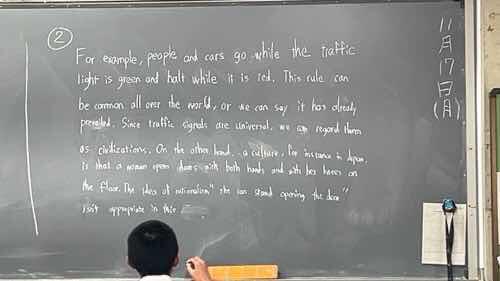 ②
For example, people and cars go while the traffic
light is green and halt while it is red. This rule can
be common all over the world, or we can say it has already
prevailed. Since traffic signals are universal, we can regard them
as civilizations. On the other hand, a culture, for instance in Japan,
is that a woman opens doors with both hands and with her knees on
the floor. The idea of rationalism "she can stand opening the door"
isn't appropriate in this
11月17日(月)